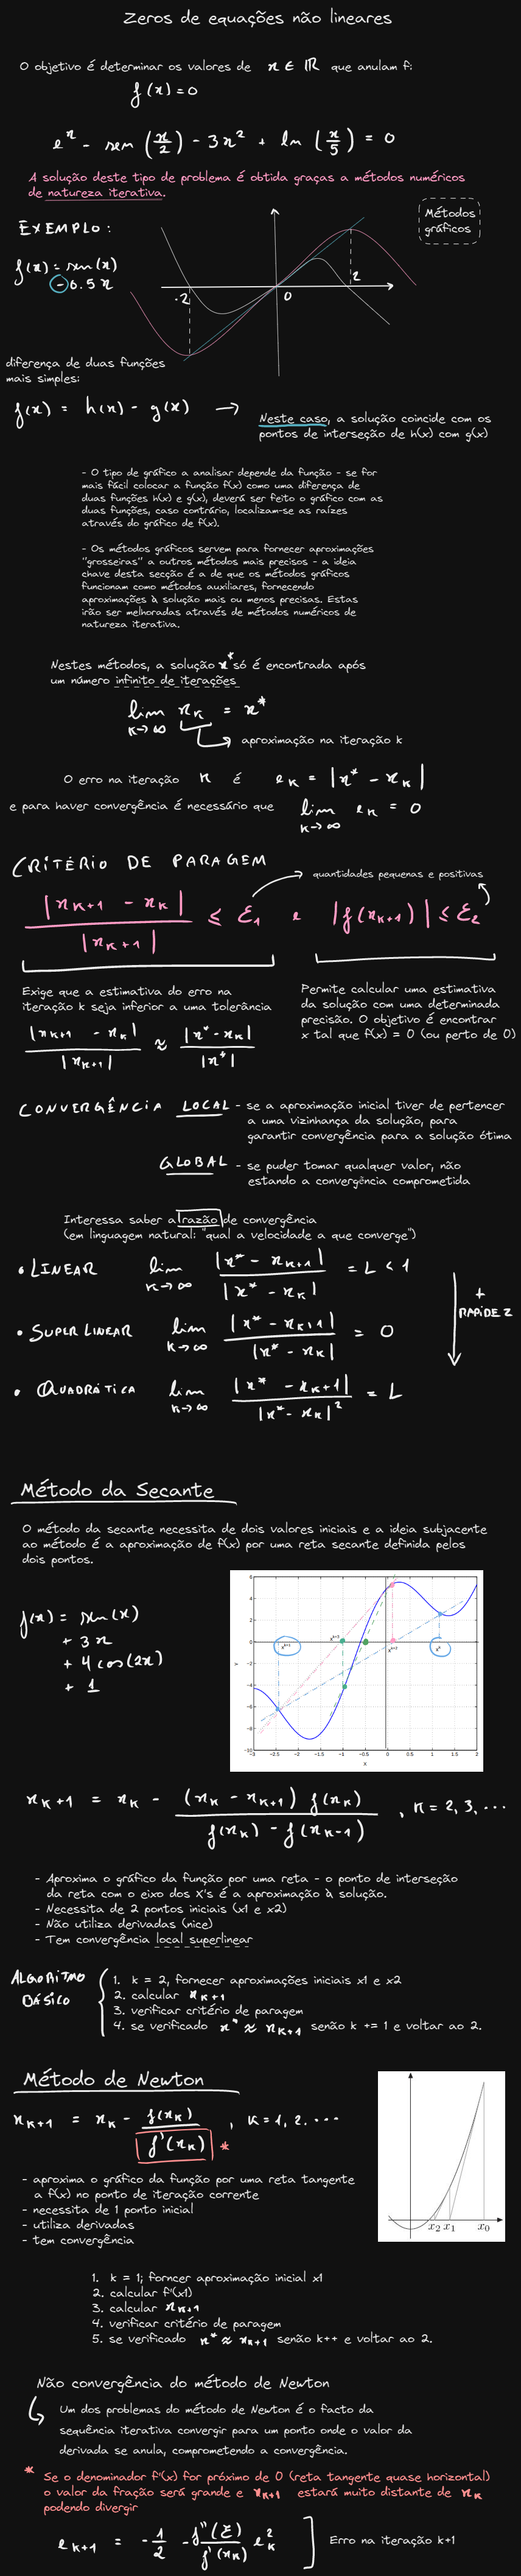 Zeros de equações não lineares
O objetivo é determinar os valores de x ∈ ℝ que anulam f:
f(x) = 0
e^x - sen (x/2) - 3x² + ln (x/5) = 0
A solução deste tipo de problema é obtida graças a métodos numéricos
de natureza iterativa.
EXEMPLO:
Métodos
gráficos
f(x) = sen(x)
- 0.5 x
-2
0
2
diferença de duas funções
mais simples:
f(x) = h(x) - g(x) →
Neste caso, a solução coincide com os
pontos de interseção de h(x) com g(x)
- O tipo de gráfico a analisar depende da função - se for
mais fácil colocar a função f(x) como uma diferença de
duas funções h(x) e g(x), deverá ser feito o gráfico com as
duas funções, caso contrário, localizam-se as raízes
através do gráfico de f(x).
- Os métodos gráficos servem para fornecer aproximações
"grosseiras" a outros métodos mais precisos - a ideia
chave desta secção é a de que os métodos gráficos
funcionam como métodos auxiliares, fornecendo
aproximações à solução mais ou menos precisas. Estas
irão ser melhoradas através de métodos numéricos de
natureza iterativa.
Nestes métodos, a solução x* só é encontrada após
um número infinito de iterações
lim k→∞ x_k = x*
aproximação na iteração k
O erro na iteração k é e_k = |x* - x_k|
e para haver convergência é necessário que lim k→∞ e_k = 0
CRITÉRIO DE PARAGEM
quantidades pequenas e positivas
|x_k+1 - x_k| / |x_k+1| ≤ ε1 e |f(x_k+1)| ≤ ε2
Exige que a estimativa do erro na
iteração k seja inferior a uma tolerância
|x_k+1 - x_k| / |x_k+1| ≈ |x* - x_k| / |x*|
Permite calcular uma estimativa
da solução com uma determinada
precisão. O objetivo é encontrar
x tal que f(x) = 0 (ou perto de 0)
CONVERGÊNCIA LOCAL - se a aproximação inicial tiver de pertencer
a uma vizinhança da solução, para
garantir convergência para a solução ótima
GLOBAL - se puder tomar qualquer valor, não
estando a convergência comprometida
Interessa saber a razão de convergência
(em linguagem natural: "qual a velocidade a que converge")
• LINEAR lim k→∞ |x* - x_k+1| / |x* - x_k| = L < 1
• SUPER LINEAR lim k→∞ |x* - x_k+1| / |x* - x_k| = 0
• QUADRÁTICA lim k→∞ |x* - x_k+1| / |x* - x_k|² = L
+
RAPIDEZ
Método da Secante
O método da secante necessita de dois valores iniciais e a ideia subjacente
ao método é a aproximação de f(x) por uma reta secante definida pelos
dois pontos.
f(x) = sen(x)
+ 3x
+ 4 cos(2x)
+ 1
6
4
2
0
-2
-4
-6
-8
-10
y
-3 -2.5 -2 -1.5 -1 -0.5 0 0.5 1 1.5 2
x
x^k-1
x^k+3
x^k+2
x^k
x_k+1 = x_k - (x_k - x_k+1) f(x_k) / f(x_k) - f(x_k-1) , k = 2, 3, ...
- Aproxima o gráfico da função por uma reta - o ponto de interseção
da reta com o eixo dos X's é a aproximação à solução.
- Necessita de 2 pontos iniciais (x1 e x2)
- Não utiliza derivadas (nice)
- Tem convergência local superlinear
ALGORITMO
BÁSICO
1. k = 2, fornecer aproximações iniciais x1 e x2
2. calcular x_k+1
3. verificar critério de paragem
4. se verificado x* ≈ x_k+1 senão k += 1 e voltar ao 2.
Método de Newton
x_k+1 = x_k - f(x_k) / f'(x_k) * , k = 1, 2. ...
x2 x1 x0
- aproxima o gráfico da função por uma reta tangente
a f(x) no ponto de iteração corrente
- necessita de 1 ponto inicial
- utiliza derivadas
- tem convergência
1. k = 1; forncer aproximação inicial x1
2. calcular f'(x1)
3. calcular x_k+1
4. verificar critério de paragem
5. se verificado x* ≈ x_k+1 senão k++ e voltar ao 2.
Não convergência do método de Newton
Um dos problemas do método de Newton é o facto da
sequência iterativa convergir para um ponto onde o valor da
derivada se anula, comprometendo a convergência.
* Se o denominador f'(x) for próximo de 0 (reta tangente quase horizontal)
o valor da fração será grande e x_k+1 estará muito distante de x_k
podendo divergir
e_k+1 = - 1/2 - f''(ξ) / f'(x_k) e_k²
Erro na iteração k+1